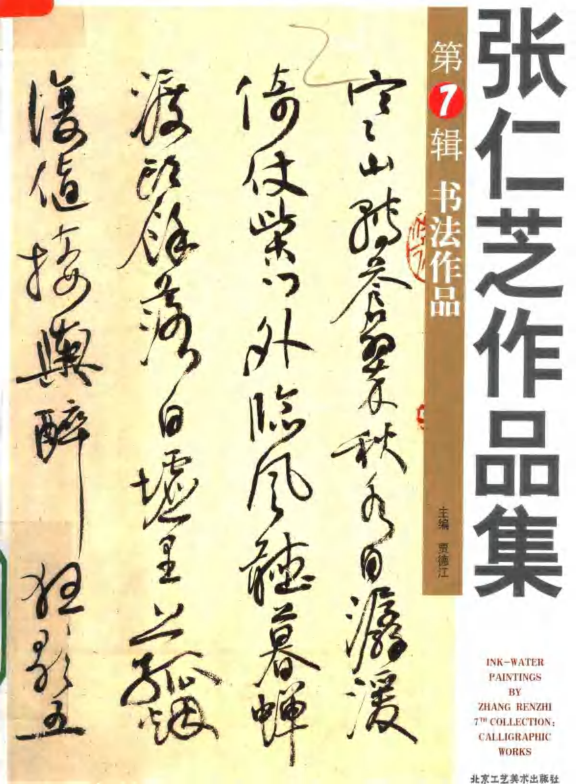 张仁芝作品集
第7辑 书法作品
主编 贾德江
空山轉蒼翠秋水日潺湲
倚仗柴门外临風聽暮蝉
渡頭餘落日墟里上孤烟
復值接輿醉狂歌五
INK-WATER
PAINTINGS
BY
ZHANG RENZHI
7TH COLLECTION:
CALLIGRAPHIC
WORKS
北京工艺美术出版社